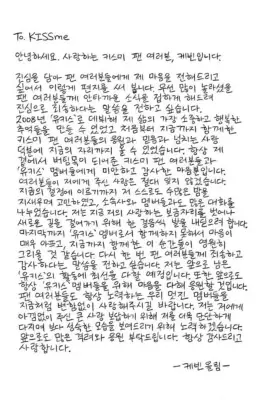 To. KISSme
안녕하세요. 사랑하는 키스미 팬 여러분, 케빈입니다.
진심을 담아 팬 여러분들에게 제 마음을 전해드리고
싶어서 이렇게 편지를 써 봅니다. 우선 많이 놀라셨을
팬 여러분들께 안타까운 소식을 접하게 해드려
진심으로 죄송하다는 말씀을 전하고 싶습니다.
2008년 '유키스'로 데뷔해 제 삶의 가장 소중하고 행복한
추억들을 만들 수 있었고, 처음부터 지금까지 함께한
키스미 팬 여러분들의 응원과 믿음과 넘치는 사랑
덕분에 지금의 자리까지 올 수 있었습니다. 항상 제
곁에서 버팀목이 되어준 키스미 팬 여러분들과
'유키스' 멤버들에게 미안하고 감사한 마음뿐입니다.
여러분들이 저에게 주신 사랑은 절대 잊지 않겠습니다.
지금의 결정에 이르기까지 저 스스로도 수많은 밤을
지새우며 고민하였고, 소속사와 멤버들과도 많은 대화를
나누었습니다. 저는 지금 저의 사랑하는 보금자리를 벗어나
새로운 길을 걸어가기 위해 한 걸음씩 발을 내딛으려 합니다.
마지막까지 '유키스' 멤버로서 함께하지 못해서 마음이
매우 아프고, 지금까지 함께한 이 순간들이 영원히
그리울 것 같습니다. 다시 한 번 팬 여러분들께 죄송하고
감사하다는 말씀을 전하고 싶습니다. 저는 앞으로 남은
'유키스'의 활동에 최선을 다할 예정입니다. 또한 앞으로도
항상 '유키스' 멤버들을 위해 마음을 다해 응원할 것입니다.
팬 여러분들도 항상 노력하는 우리 멋진 멤버들을
지금처럼 변함없이 사랑해주시길 바랍니다. 저는 저에게
아낌없이 주신 큰 사랑 보답하기 위해 저를 더욱 단단하게
다지며 보다 성숙한 모습을 보여드리기 위해 노력하겠습니다.
앞으로도 많은 격려와 응원 부탁드립니다. 항상 감사드리고
사랑합니다.
- 케빈 올림 -